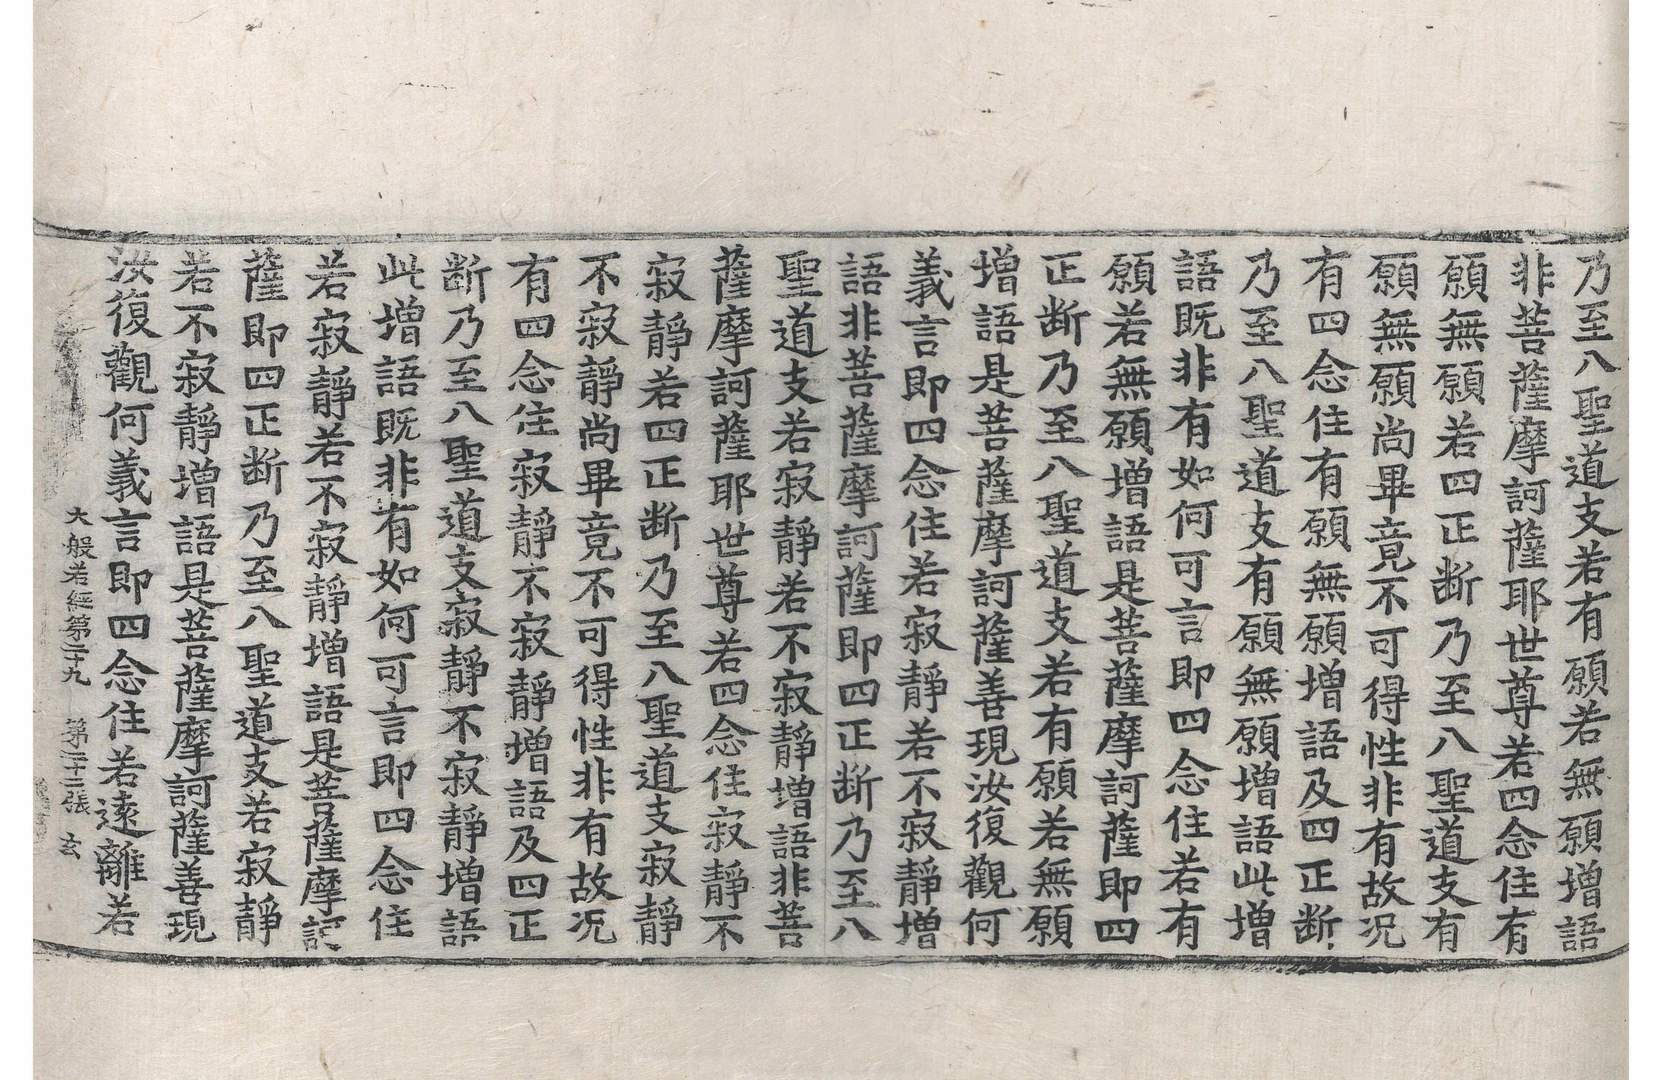 乃至八聖道支若有願若無願增語
非菩薩摩訶薩耶世尊若四念住有
願無願若四正断乃至八聖道支有
願無願尚畢竟不可得性非有故况
有四念住有願無願增語及四正断
乃至八聖道支有願無願增語此增
語既非有如何可言即四念住若有
願若無願增語是菩薩摩訶薩即四
正断乃至八聖道支若有願若無願
增語是菩薩摩訶薩善現汝復觀何
義言即四念住若寂靜若不寂靜增
語非菩薩摩訶薩即四正断乃至八
聖道支若寂靜若不寂靜增語非菩
薩摩訶薩耶世尊若四念住寂靜不
寂靜若四正断乃至八聖道支寂靜
不寂靜尚畢竟不可得性非有故况
有四念住寂靜不寂靜增語及四正
断乃至八聖道支寂靜不寂靜增語
此增語既非有如何可言即四念住
若寂靜若不寂靜增語是菩薩摩訶
薩即四正断乃至八聖道支若寂靜
若不寂靜增語是菩薩摩訶薩善現
汝復觀何義言即四念住若遠離若
大般若經第二十九 第二十二張 玄